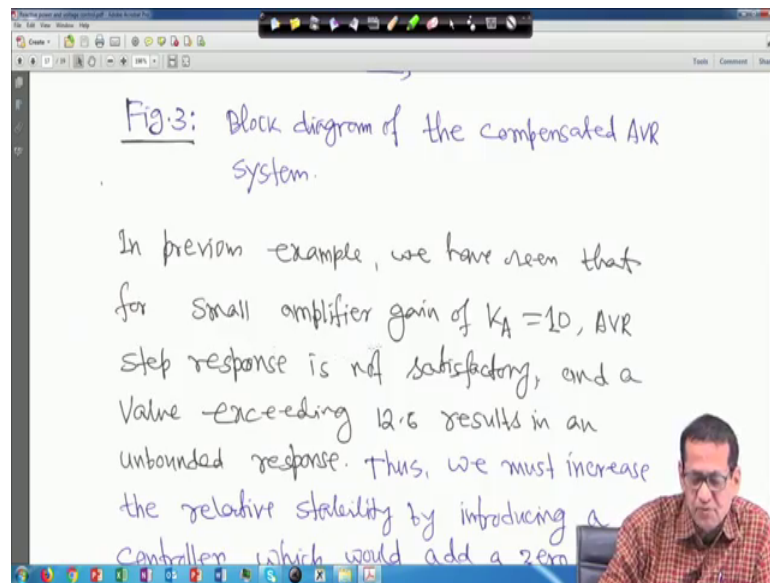 Reactive power and voltage control.pdf - Adobe Acrobat Pro
File Edit View Window Help
Create
17 / 19
Tools Comment
Fig.3: Block diagram of the compensated AVR
system.
In previous example, we have seen that
for small amplifier gain of KA = 10, AVR
step response is not satisfactory, and a
value exceeding 12.6 results in an
unbounded response. Thus, we must increase
the relative stability by introducing a
controller which would add a zero